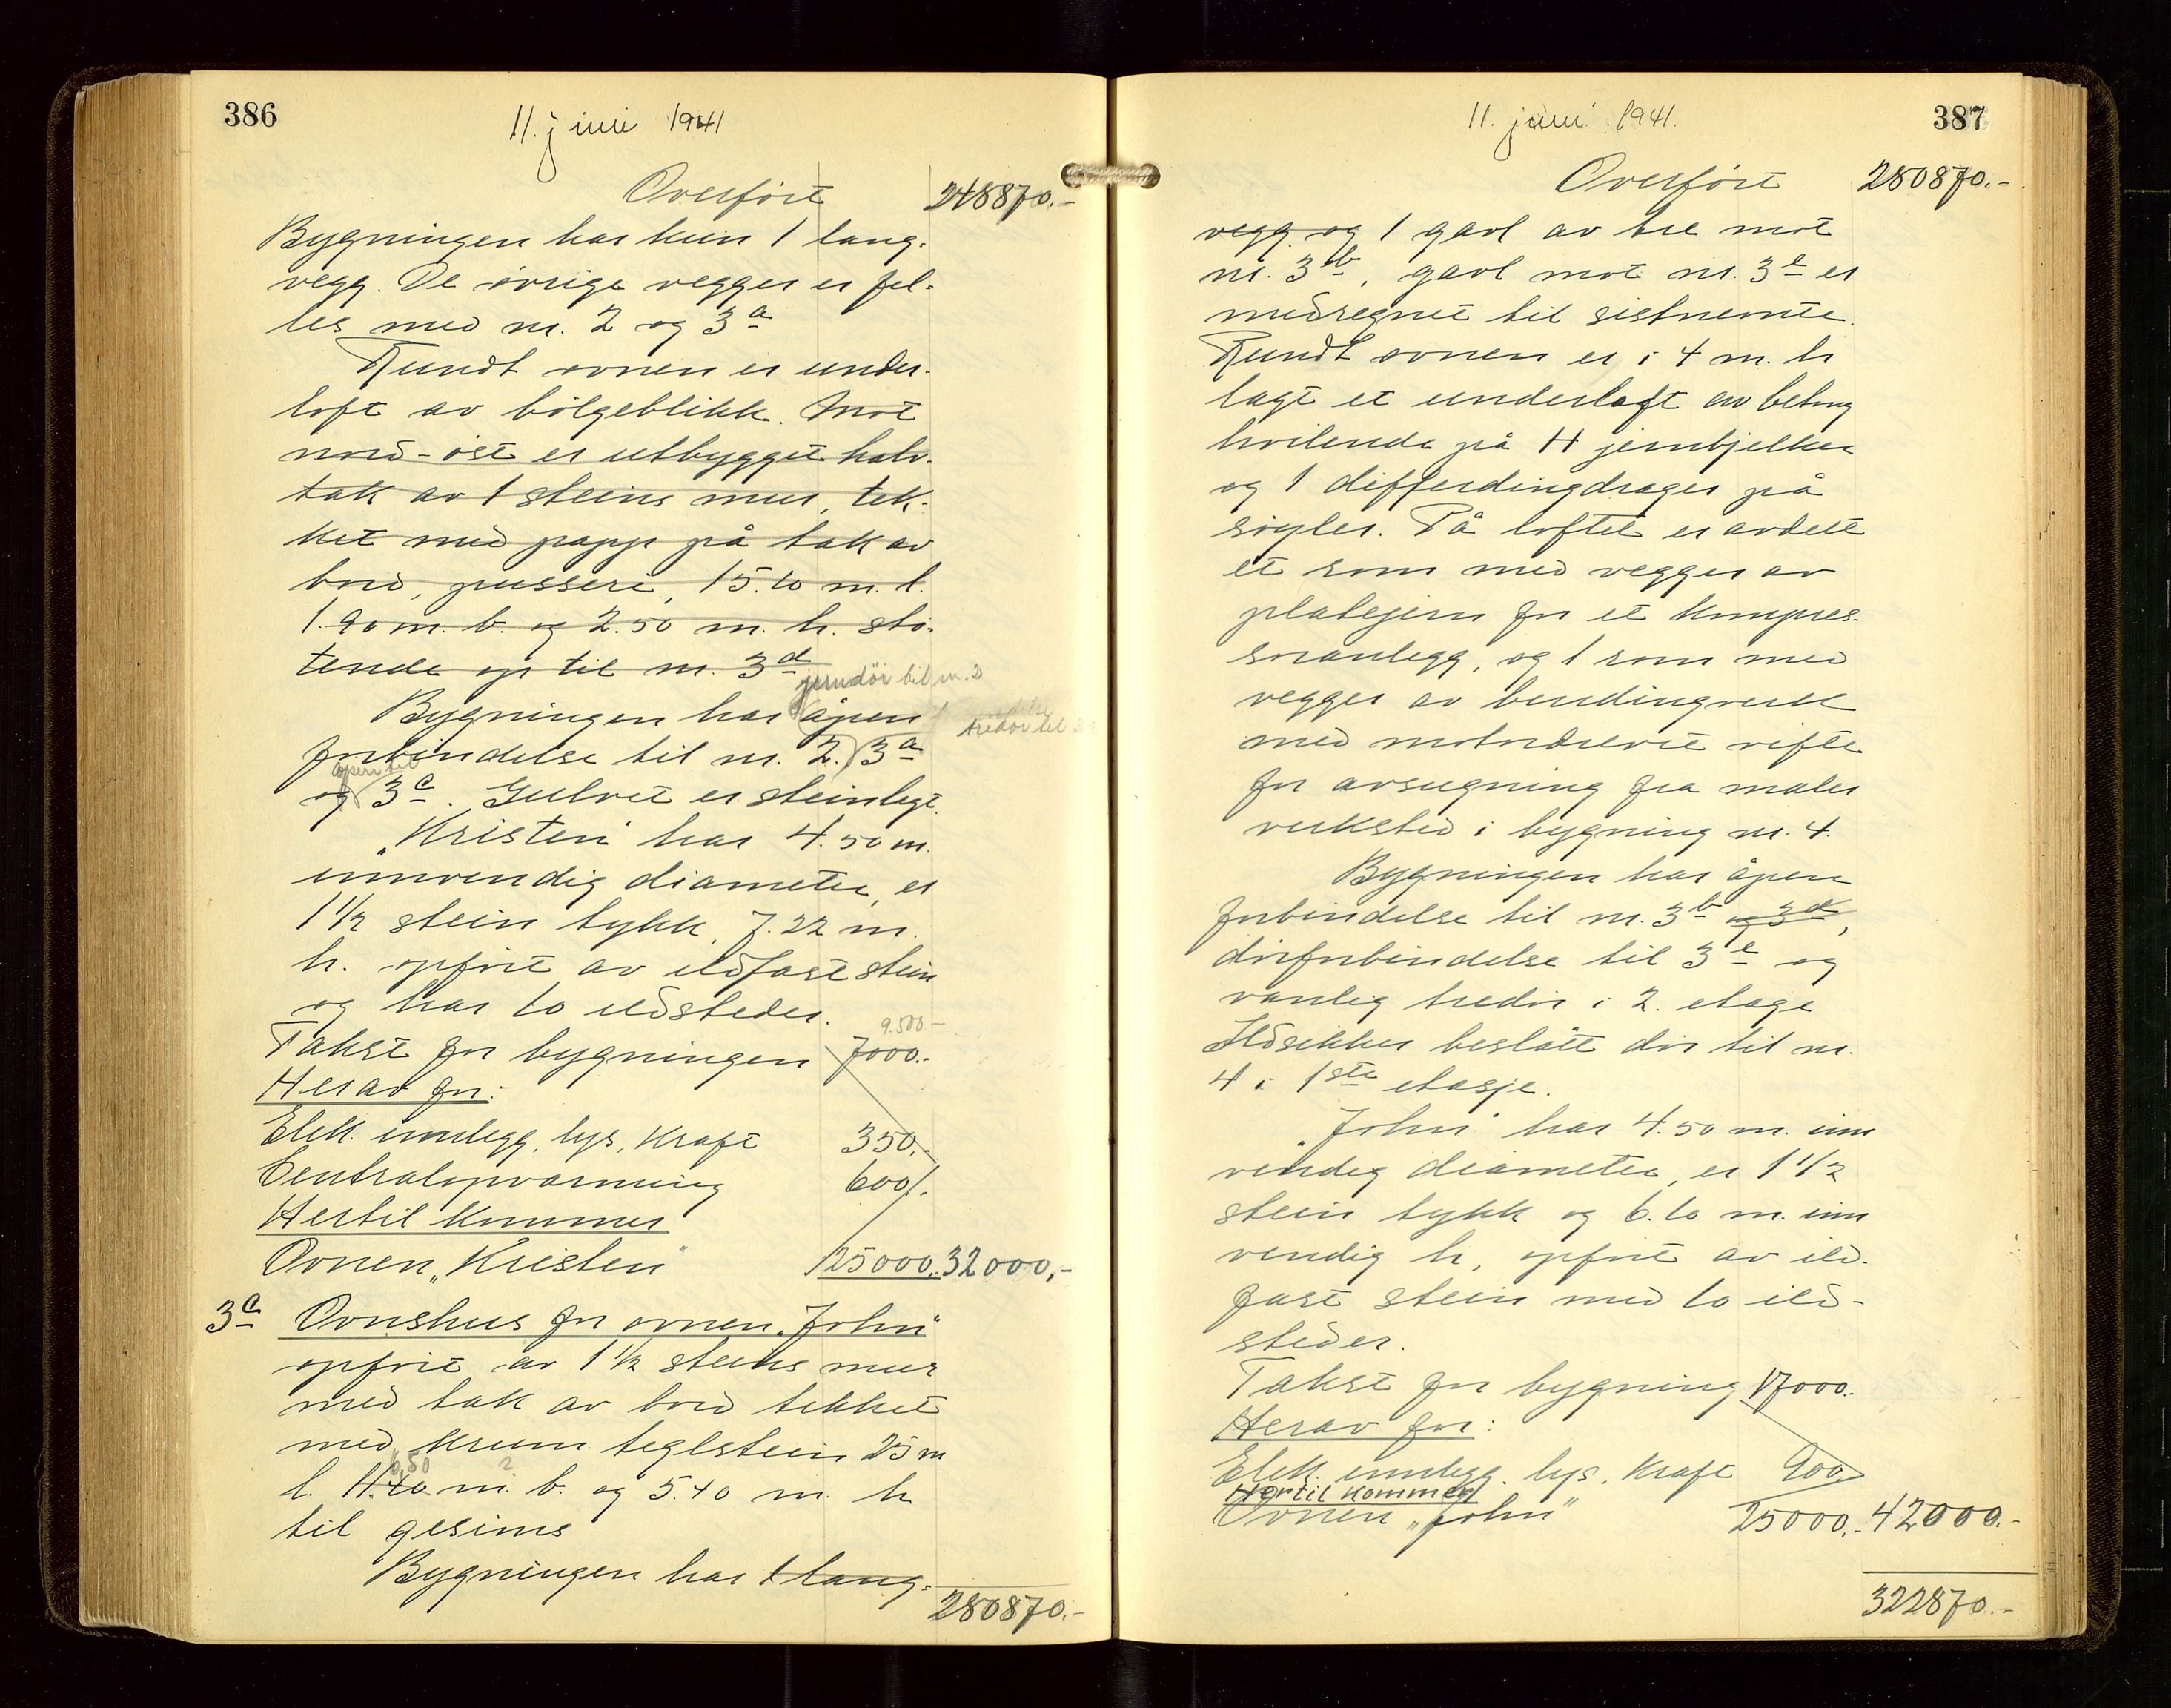 386
11. juni 1941
Overført 248870.-
Bygningen har kun 1 lang-
vegg. De øvrige vegger er fel-
les med nr. 2 og 3a
Rundt ovnen er under-
loft av bølgeblikk. Mot
nord-øst er utbygget halv-
tak av 1 steins mur, tek-
ket med papp på tak av
bord, pusseri, 15.10 m. l.
1.90 m. b. og 2.50 m. h. stø-
tende op til nr. 3d
jerndør til nr. 2
Bygningen har åpen
tredør til 3a
forbindelse til nr. 2. 3a
åpen til
og 3c. Gulvet er steinlagt.
„Kristen" har 4.50 m.
innvendig diameter, er
1 1/2 stein tykk, 7.22 m.
h. opført av ildfast stein
og har 10 ildsteder.
9.500-
Takst for bygningen 7000.-
Herav for:
Elek. innlegg, lys, kraft 350.-
Centralopvarming 600/.
Hertil kommer
Ovnen „Kristen" 25000.- 32000,-
3c Ovnshus for ovnen „John"
opført av 1 1/2 steins mur
med tak av bord tekket
med krum teglstein 25 m
6,50
l. 11.40 m. b. og 5.40 m. h
til gesims
Bygningen har 1 lang-
280870.-
387
11. juni 1941.
Overført 280870.-
vegg. og 1 gavl av tre mot
nr. 3b, gavl mot nr. 3e er
medregnet til sistnemte.
Rundt ovnen er i 4 m. h
lagt et underloft av betong
hvilende på H jernbjelker
og 1 differdingdrager på
søyler. På loftet er avdelt
et rom med vegger av
platejern for et kompres-
soranlegg, og 1 rom med
vegger av bindingverk
med motordrevet vifte
for avsugning fra maler
verksted i bygning nr. 4.
Bygningen har åpen
forbindelse til nr. 3b og 3d,
dørforbindelse til 3e og
vanlig tredør i 2. etage
Ildsikker beslått dør til nr.
4 i 1ste etasje.
„John" har 4.50 m. inn
vendig diameter, er 1 1/2
stein tykk og 6.10 m. inn
vendig h, opført av ild-
fast stein med 10 ild-
steder.
Takst for bygning 17000.-
Herav for:
Elek. innlegg. lys, kraft 900
Hertil kommer
Ovnen „John" 25000.- 42000.-
322870.-